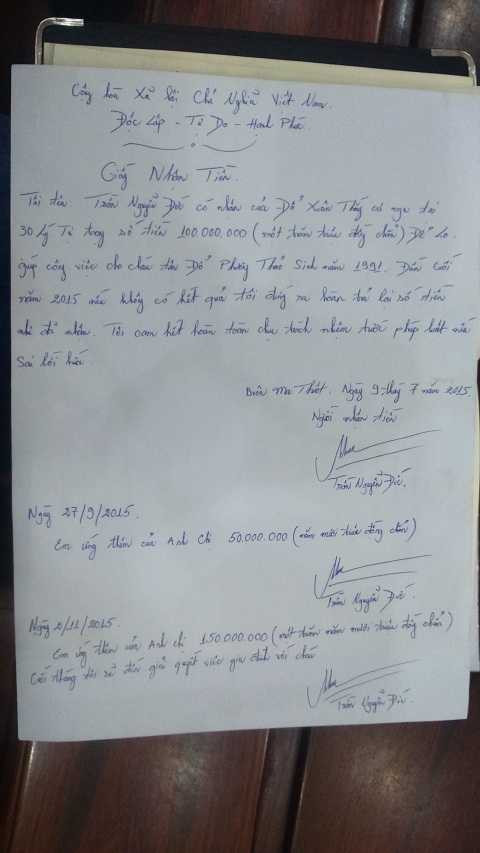 Cộng hòa Xã hội Chủ Nghĩa Việt Nam.
Độc Lập - Tự Do - Hạnh Phúc.
Giấy Nhận Tiền.
Tôi tên Trần Nguyễn Đức có nhận của Đỗ Xuân Thủy có ngụ tại
30 Lý Tự Trọng số tiền 100.000.000 (một trăm triệu đồng chẵn) Để Lo
giúp công việc cho cháu tên Đỗ Phương Thảo Sinh năm 1991. Đến cuối
năm 2015 nếu không có kết quả tôi đứng ra hoàn trả lại số tiền
như đã nhận. Tôi cam kết hoàn toàn chịu trách nhiệm trước pháp luật nếu
sai lời hứa.
Buôn Ma Thuột. Ngày 9 tháng 7 năm 2015.
Người nhận tiền
Trần Nguyễn Đức.
Ngày 27/9/2015.
Em ứng thêm của Anh Chị 50.000.000 (năm mươi triệu đồng chẵn)
Trần Nguyễn Đức.
Ngày 2/11/2015.
Em ứng thêm của Anh chị 150.000.000 (một trăm năm mươi triệu đồng chẵn)
Cuối tháng tôi sẽ đến giải quyết việc gia đình với cháu
Trần Nguyễn Đức.